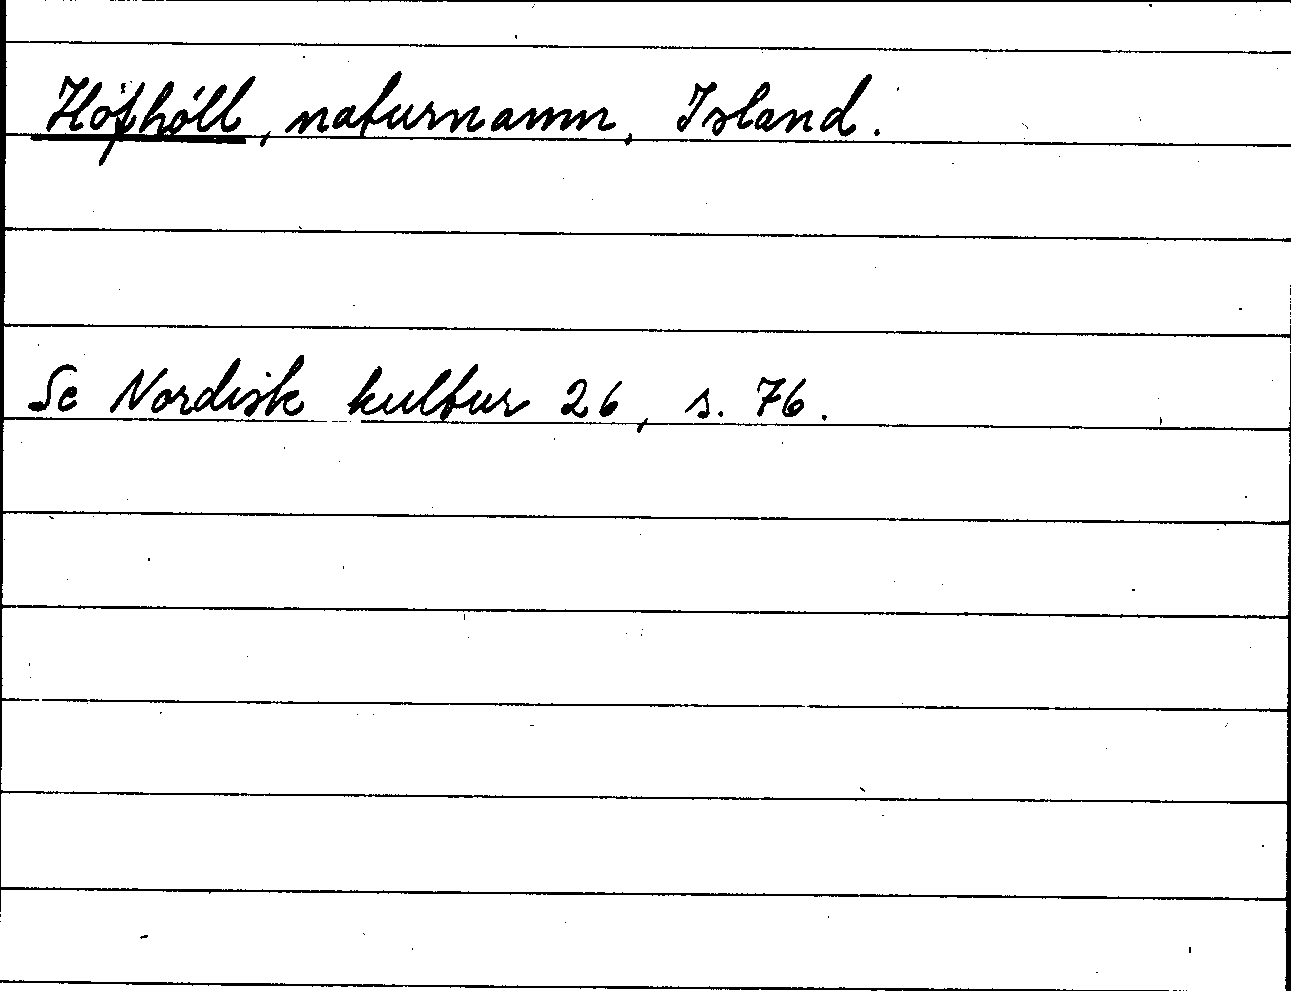 Hófhóll, naturnamn, Island.
Se Nordisk kultur 26, s. 76.